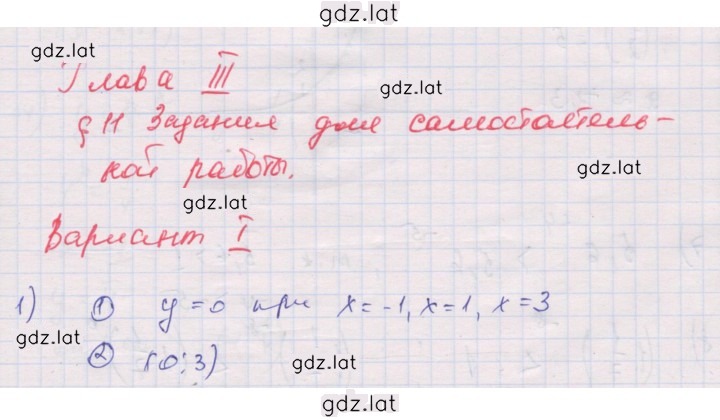 gdz.lat
gdz.lat
Глава III
gdz.lat
§ 11 Задания для самостоятель-
ной работы.
gdz.lat
gdz.lat
Вариант I
1) ① y = 0 при x = -1, x = 1, x = 3
gdz.lat
② (0; 3)
gdz.lat
gdz.lat